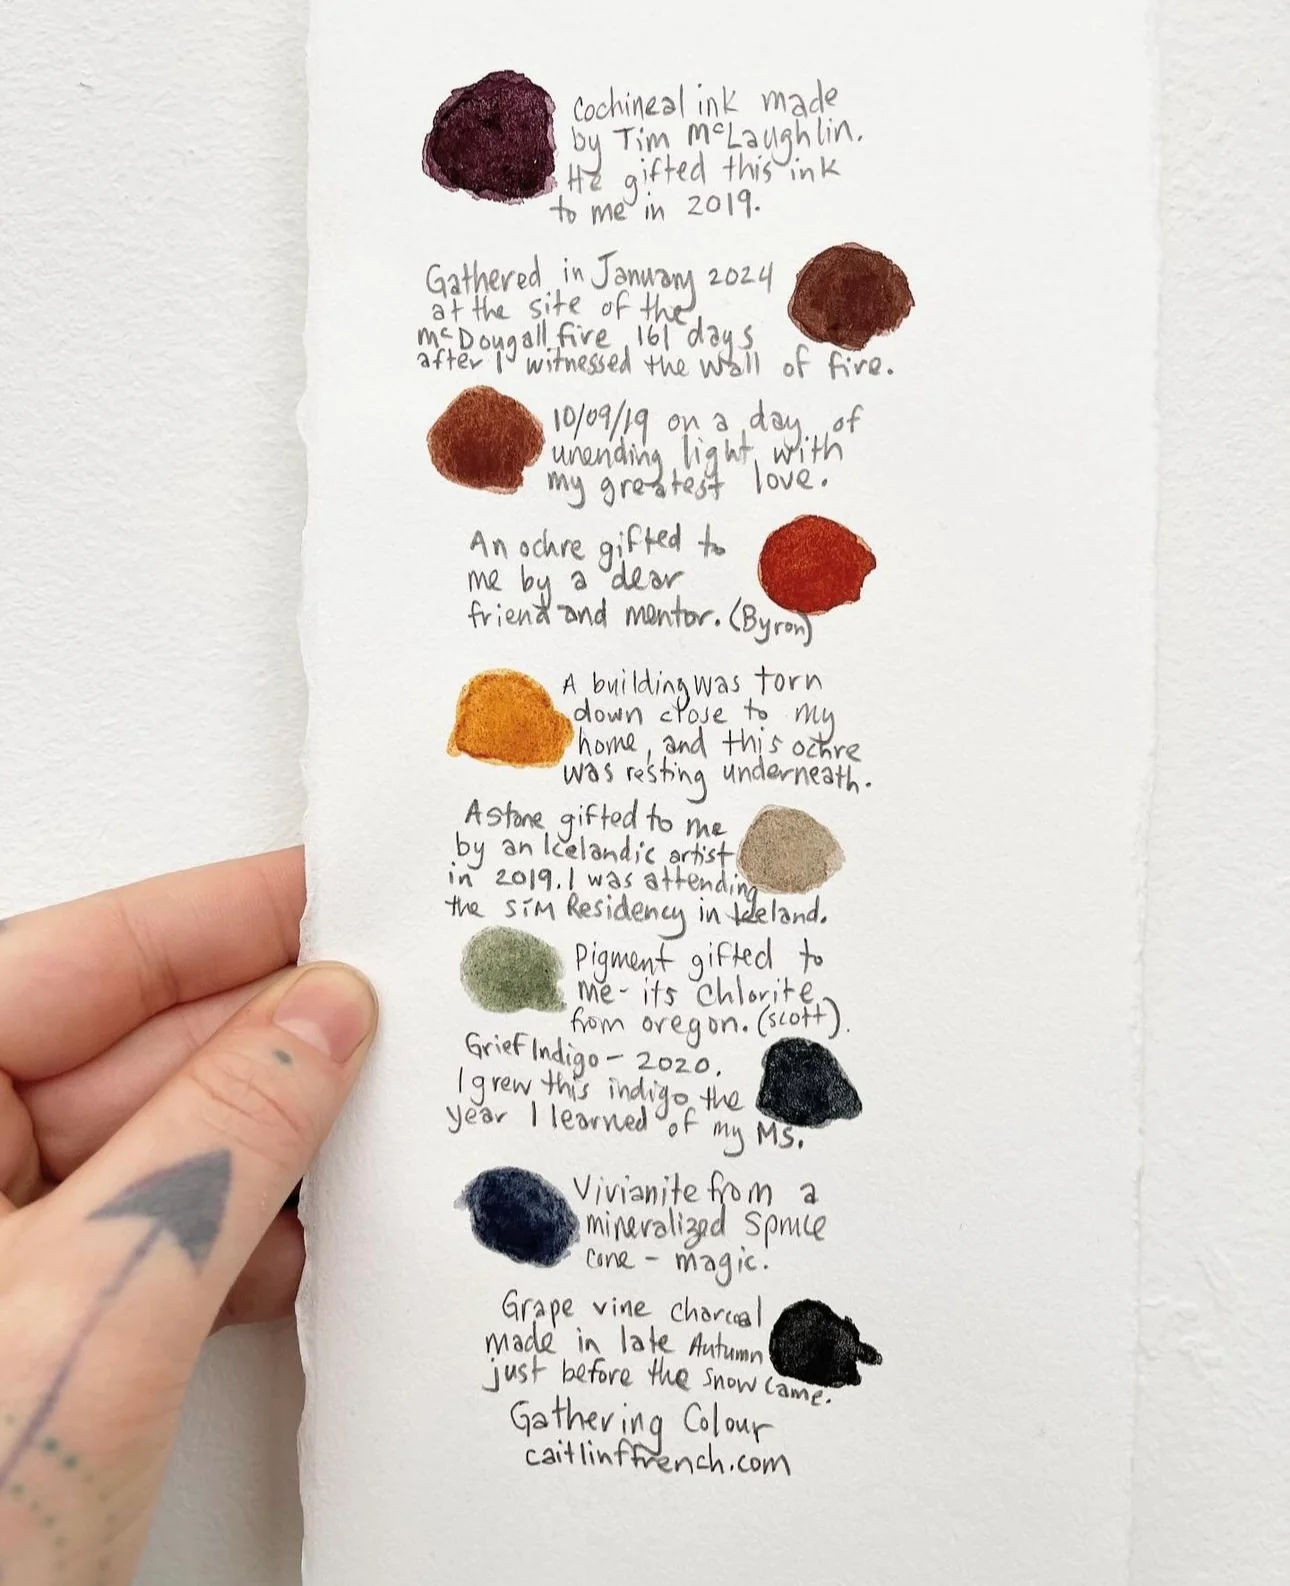 Cochineal ink made
by Tim McLaughlin.
He gifted this ink
to me in 2019.
Gathered in January 2024
at the site of the
McDougall fire 161 days
after I witnessed the wall of fire.
10/09/19 on a day of
unending light with
my greatest love.
An ochre gifted to
me by a dear
friend and mentor. (Byron)
A building was torn
down close to my
home, and this ochre
was resting underneath.
A stone gifted to me
by an Icelandic artist
in 2019. I was attending
the SIM Residency in Iceland.
Pigment gifted to
me - its Chlorite
from oregon. (scott).
Grief Indigo - 2020.
I grew this indigo the
year I learned of my MS.
Vivianite from a
mineralized Spruce
cone - magic.
Grape vine charcoal
made in late Autumn
just before the snow came.
Gathering Colour
caitlinffrench.com